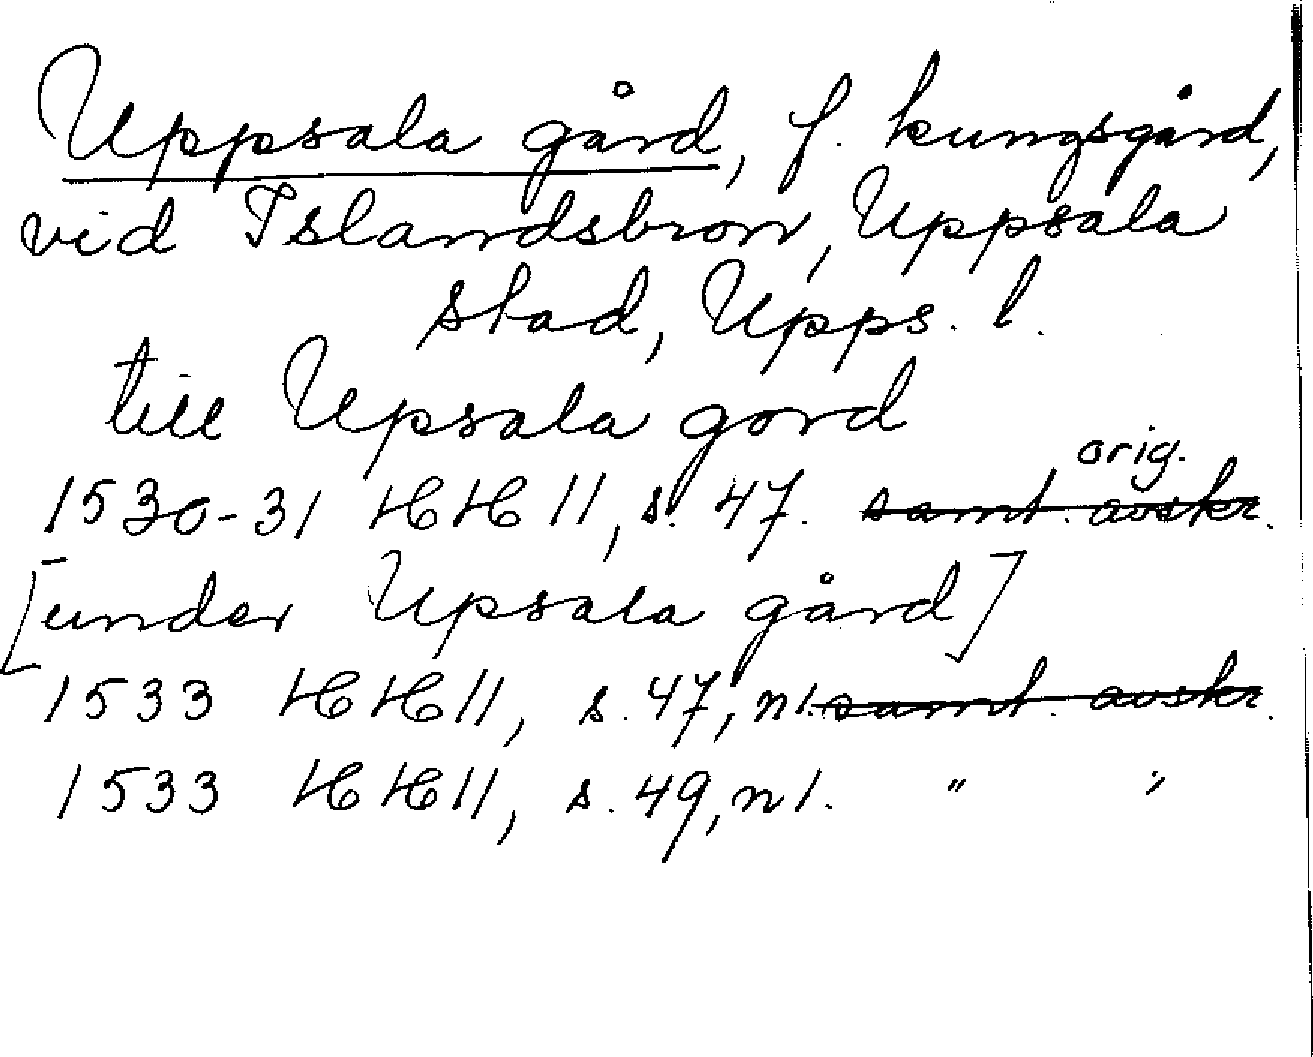 Uppsala gård, f. kungsgård,
vid Islandsbron, Uppsala
stad, Upps. l.
till Upsala gord
orig.
1530-31 HH 11, s. 47. samt. avskr.
[under Upsala gård]
1533 HH 11, s. 47, n 1. samt. avskr.
1533 HH 11, s. 49, n 1. " "